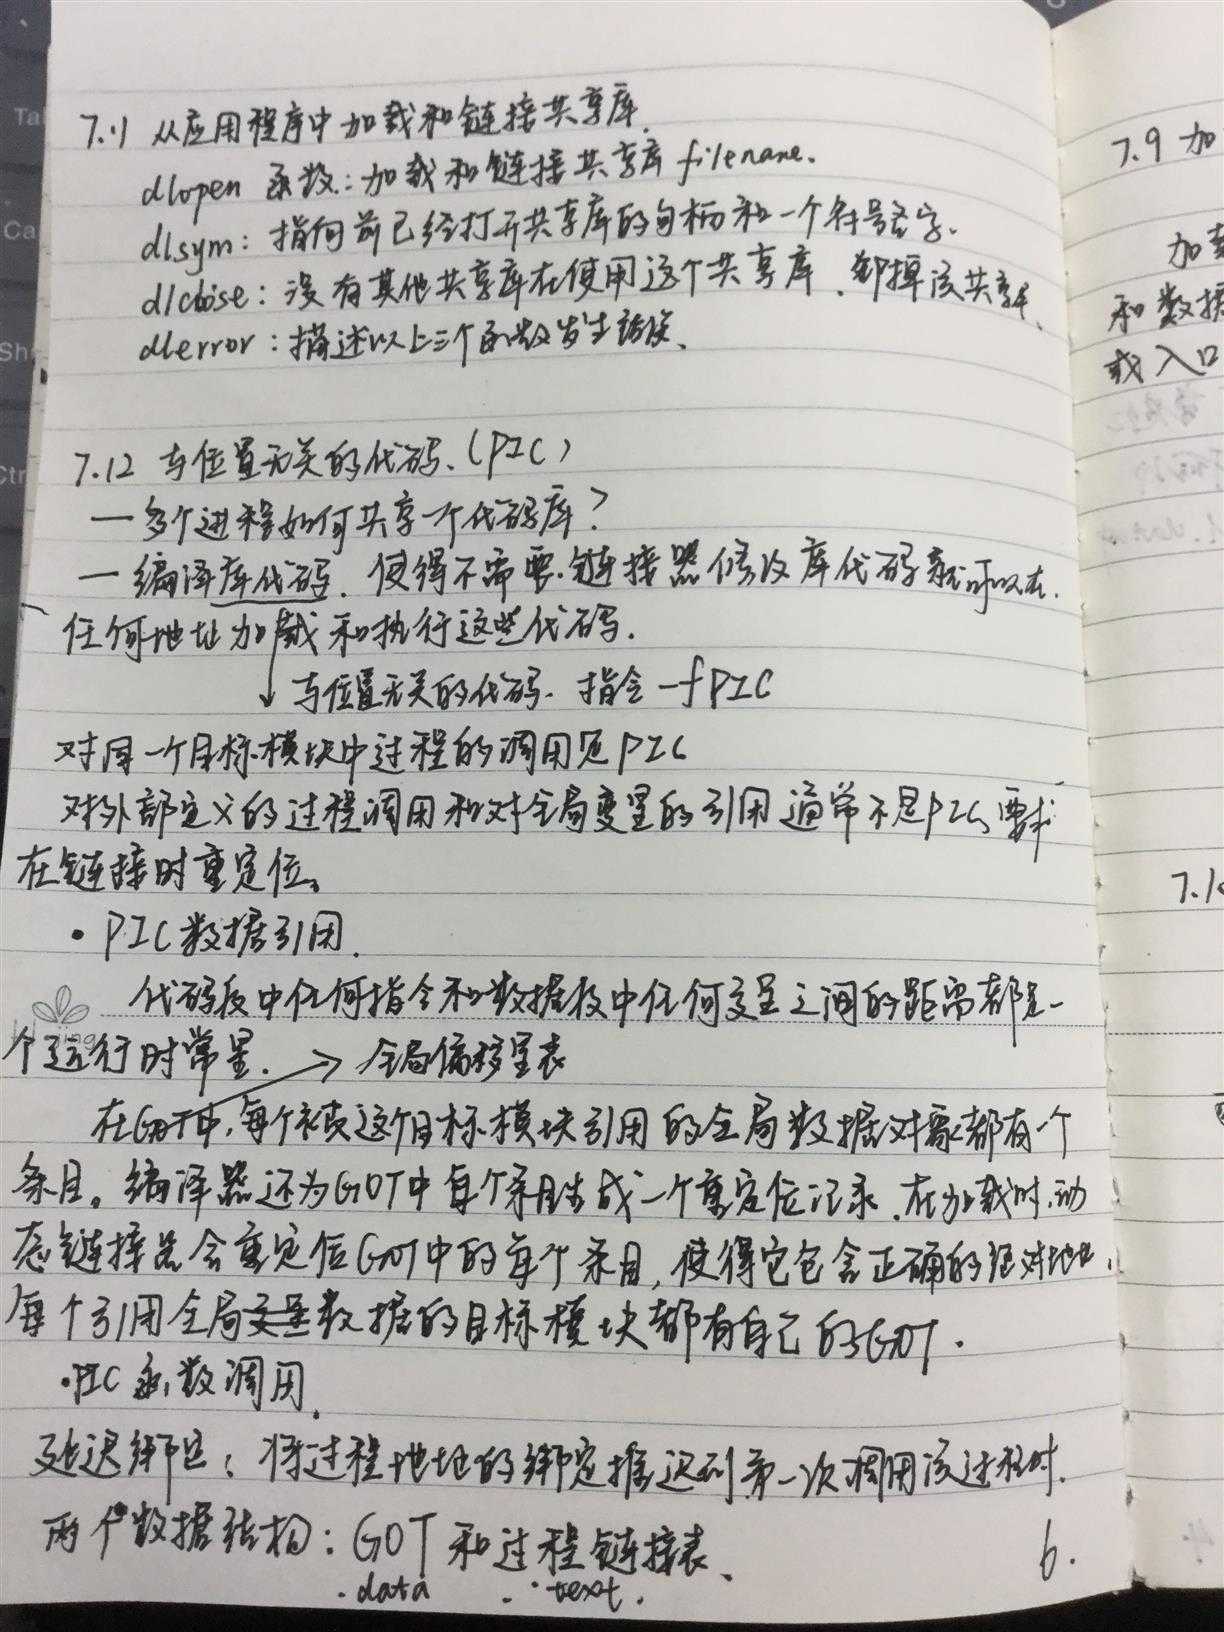 7.11 从应用程序中加载和链接共享库.
dlopen 函数:加载和链接共享库 filename.
dlsym: 指向前已经打开共享库的句柄和一个符号名字.
dlclose: 没有其他共享库在使用这个共享库、卸掉该共享库、
dlerror: 描述以上三个函数发生错误、
7.12 与位置无关的代码、(PIC)
— 多个进程如何共享一个代码库?
— 编译库代码、使得不需要链接器修改库代码就可以在
任何地址加载和执行这些代码.
↓ 与位置无关的代码. 指令 -fPIC
对同一个目标模块中过程的调用是PIC
对外部定义的过程调用和对全局变量的引用通常不是PIC,要求
在链接时重定位。
• PIC数据引用.
代码段中任何指令和数据段中任何变量之间的距离都是一
个运行时常量. → 全局偏移量表
在GOT中,每个被这个目标模块引用的全局数据对象都有一个
条目。编译器还为GOT中每个条目生成一个重定位记录.在加载时,动
态链接器会重定位GOT中的每个条目,使得它包含正确的绝对地址.
每个引用全局变量数据的目标模块都有自己的GOT.
•PIC函数调用.
延迟绑定:将过程地址的绑定推迟到第一次调用该过程时.
两个数据结构:GOT和过程链接表、
.data .text.
6.
7.9 加
加载
和数据
或入口
7.1